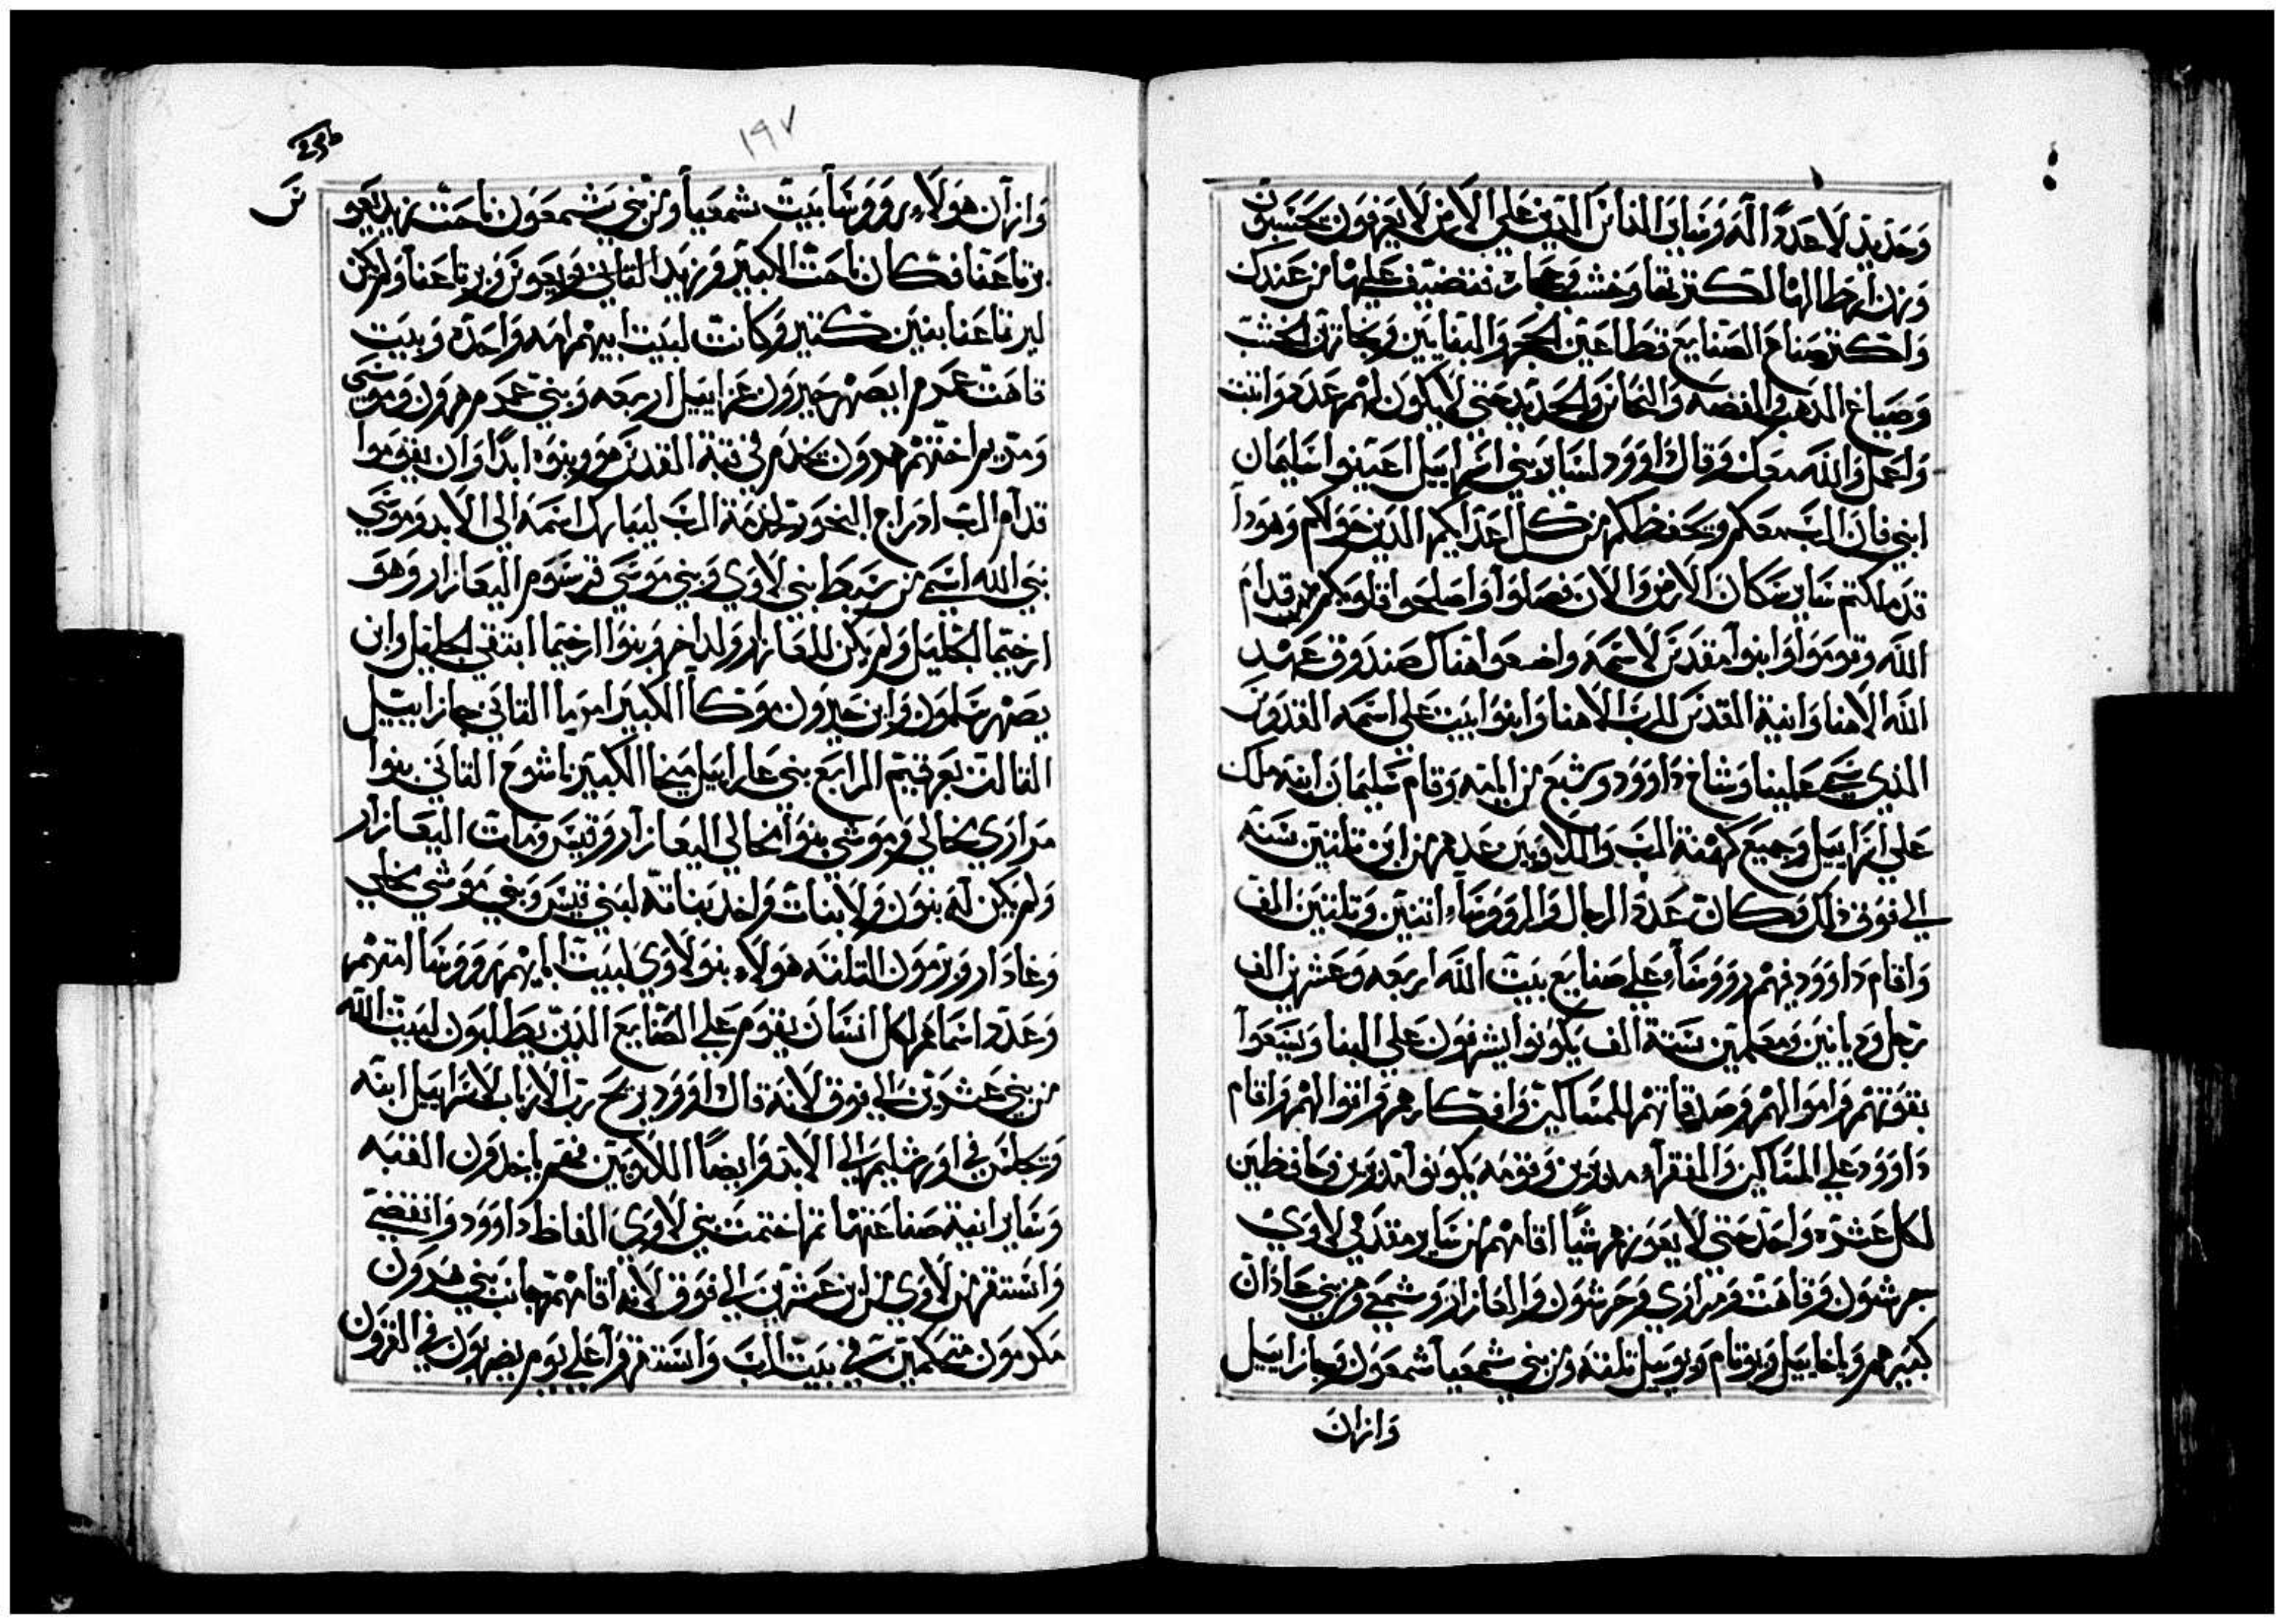 وحديد لا عدد اله وساير الناس الذين علي الارض لا يعرفون يحسبون
وزن ارطالها لكثرتها وخشب وحجاره فتضيف عليها من عندك
واكثر صناع الصنايع قطاعين الحجر والبنايين ونجارين الخشب
وصياغ الدهب والفضه والنحاس والحديد حتي لا يكون لهم عدد واثبت
واعمل والله معك وقال داوود لساير بني اسراييل اعينوا سليمان
ابني فان الرب معكم ويحفظكم من كل اعدايكم الدين حولكم وهودا
قد ملكتم ساير سكان الارض والان فصلوا واصلحوا قلوبكم من قدام
الله وقوموا وابنوا مقدس لاسمه واضعوا هناك صندوق عهد
الله الاهنا وانية القدس للرب الاهنا وابنوا بيت علي اسمه القدوس
الذي سمي علينا وشاخ داوود وشبع من ايامه وقام سليمان ابنه ملك
علي اسراييل وجميع كهنة الرب واللاويين عددهم من ابن تلتين سنه
الي فوق ذلك وكان عدة الرجال والرووسا اتنين وتلتين الف
واقام داوود فيهم رووسا علي صنايع بيت الله اربعه وعشرين الف
رجل وديانين ومعلمين ستة الف يكونوا يشرفون علي البنا ويسعوا
بقوتهم واموالهم وصدقاتهم للمساكين وافتكارهم واتوا لهم واقام
داوود علي المساكين والفقرا مدبرين وقومه يكونوا مدبرين وحافظين
لكل عشره واحد حتي لا يعوزهم شيا اقامهم من ساير مقدمي لاوي
جرشون وقاهت ومراري وجرشون والعازار وشمعي ومن بني عادان
كبيرهم وباخاييل وبوتام ويوييل تلته ومن بني شمعيا شمعون وحازاييل
وازان
١٩٧
وازان هولاء رووسا بيت شمعيا ومن بني شمعون ناحت زيد يعو
برتاعنا فكان ناحت الكبير وزيد التاني ويعوس وبرتاعنا ولم يكن
لبرتاعنا بنين كتير وكانت لبيت ابيهم امه واحده وبيت
قاهت عمرم ايصهر حبرون عزاييل اربعه وبني عمرم هرون وموسي
ومريم اختهم هرون يخدم في قبة القدس هو وبنوه ابدا وان يقوموا
قدام الرب ادراج البخور لخدمة الرب ليبارك اسمه الي الابد وموسي
نبي الله اسمي من سبط بني لاوي وبني موسي قرسوم اليعازار وهو
ارحتما الجليل ولم يكن للعازار ولد اخر وبنوا ارحيما ابتقي الجليل وابن
يصهر سلمون وابن حبرون يوكا الكبير امريا التاني حازاييل
التالت يعرقيم الرابع بني عاراييل ميخا الكبير ناشوح التاني بنوا
مراري نخالي وموشي بنوا نخالي اليعازار وقيس ومات اليعازار
ولم يكن له بنون ولا بنات واخد بناته لبني قيس وبني موشي نخلي
وغادار ورتمون التلته هولاء بنو لاوي لبيت ابايهم رووسا امتهم
وعدد اسماهم لكل انسان يقوم علي الصنايع الذين يطلبون لبيت الله
من بني عشرين الي فوق لانه قال داوود يربح رب الارباب لاسراييل ابنه
ويجلس في اورشليم الي الابد وايضا اللاويين فهم ياخدون القبه
وساير انية صناعتها تم اختمت بني لاوي الفاظ داوود وانقضي
واستقر من لاوي من ابن عشرين الي فوق لانه اقامهم جانب بني هرون
مكرمون متحكمين في بيت الرب واستقروا علي يوم يضربون في القرون